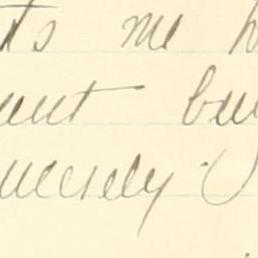 ts me h
ent bu
ncerely